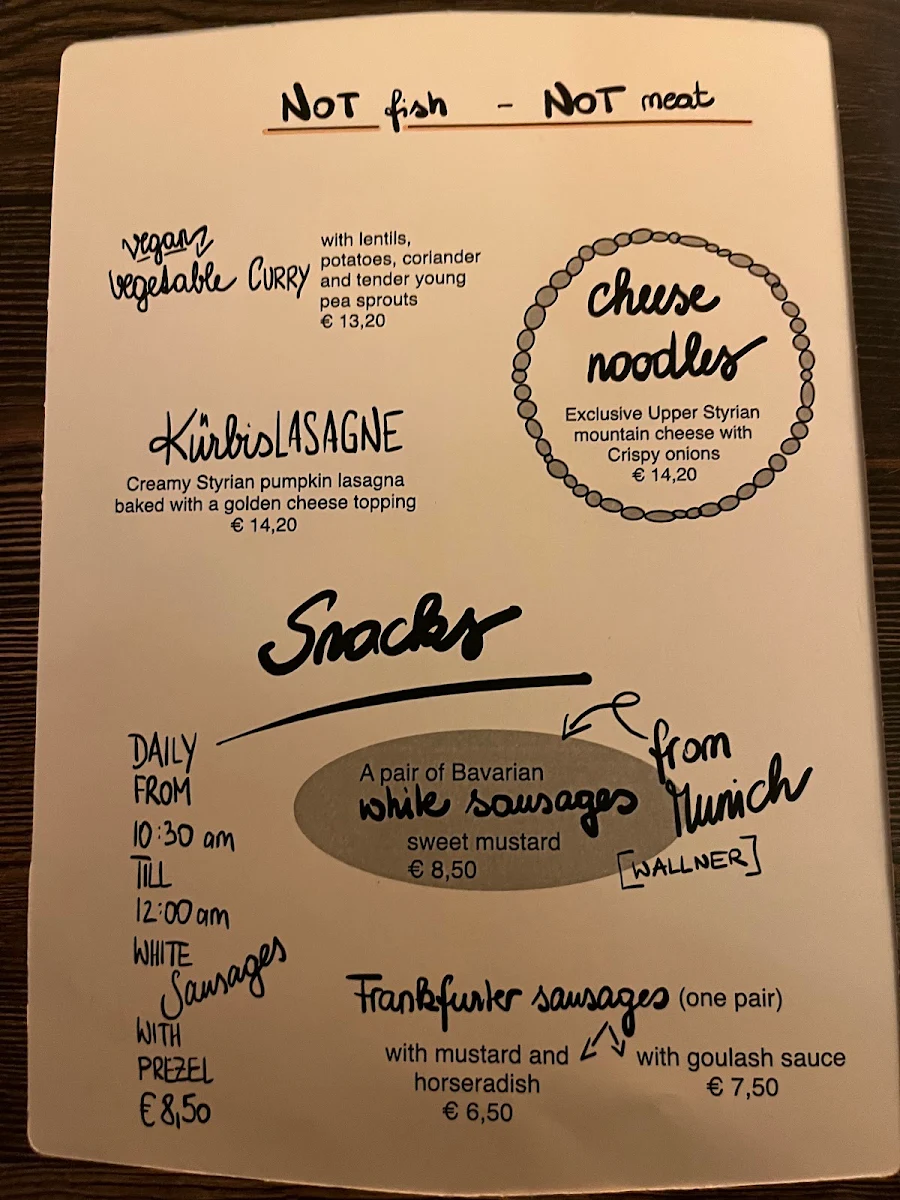 NOT fish - NOT meat
vegan
vegetable CURRY
with lentils,
potatoes, coriander
and tender young
pea sprouts
€ 13,20
cheese
noodles
Exclusive Upper Styrian
mountain cheese with
Crispy onions
€ 14,20
KürbisLASAGNE
Creamy Styrian pumpkin lasagna
baked with a golden cheese topping
€ 14,20
Snacks
DAILY
FROM
10:30 am
TILL
12:00 am
WHITE
Sausages
WITH
PREZEL
€ 8,50
A pair of Bavarian
white sausages
sweet mustard
€ 8,50
from
Munich
[WALLNER]
Frankfurter sausages (one pair)
with mustard and
horseradish
€ 6,50
with goulash sauce
€ 7,50